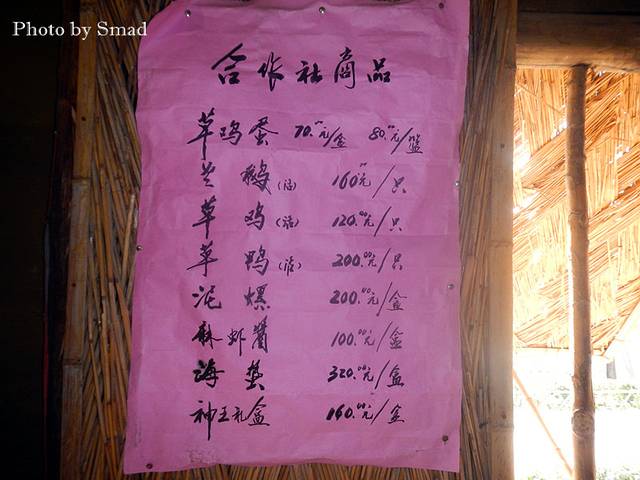 Photo by Smad
合作社商品
草鸡蛋 70.00元/盒 80.00元/篮
兰 鹅(活) 160.00元/只
草 鸡(活) 120.00元/只
草 鸭(活) 200.00元/只
泥 螺 200.00元/盒
麻虾酱 100.00元/盒
海 蜇 320.00元/盒
神王礼盒 160.00元/盒